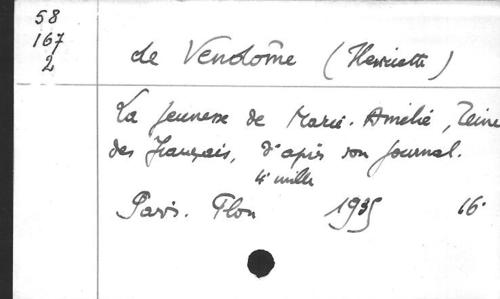 58
167
2
de Vendôme (Henriette)
La jeunesse de Marie-Amélie, Reine
des Français, d'après son journal.
4e mille
Paris. Plon 1935 16°